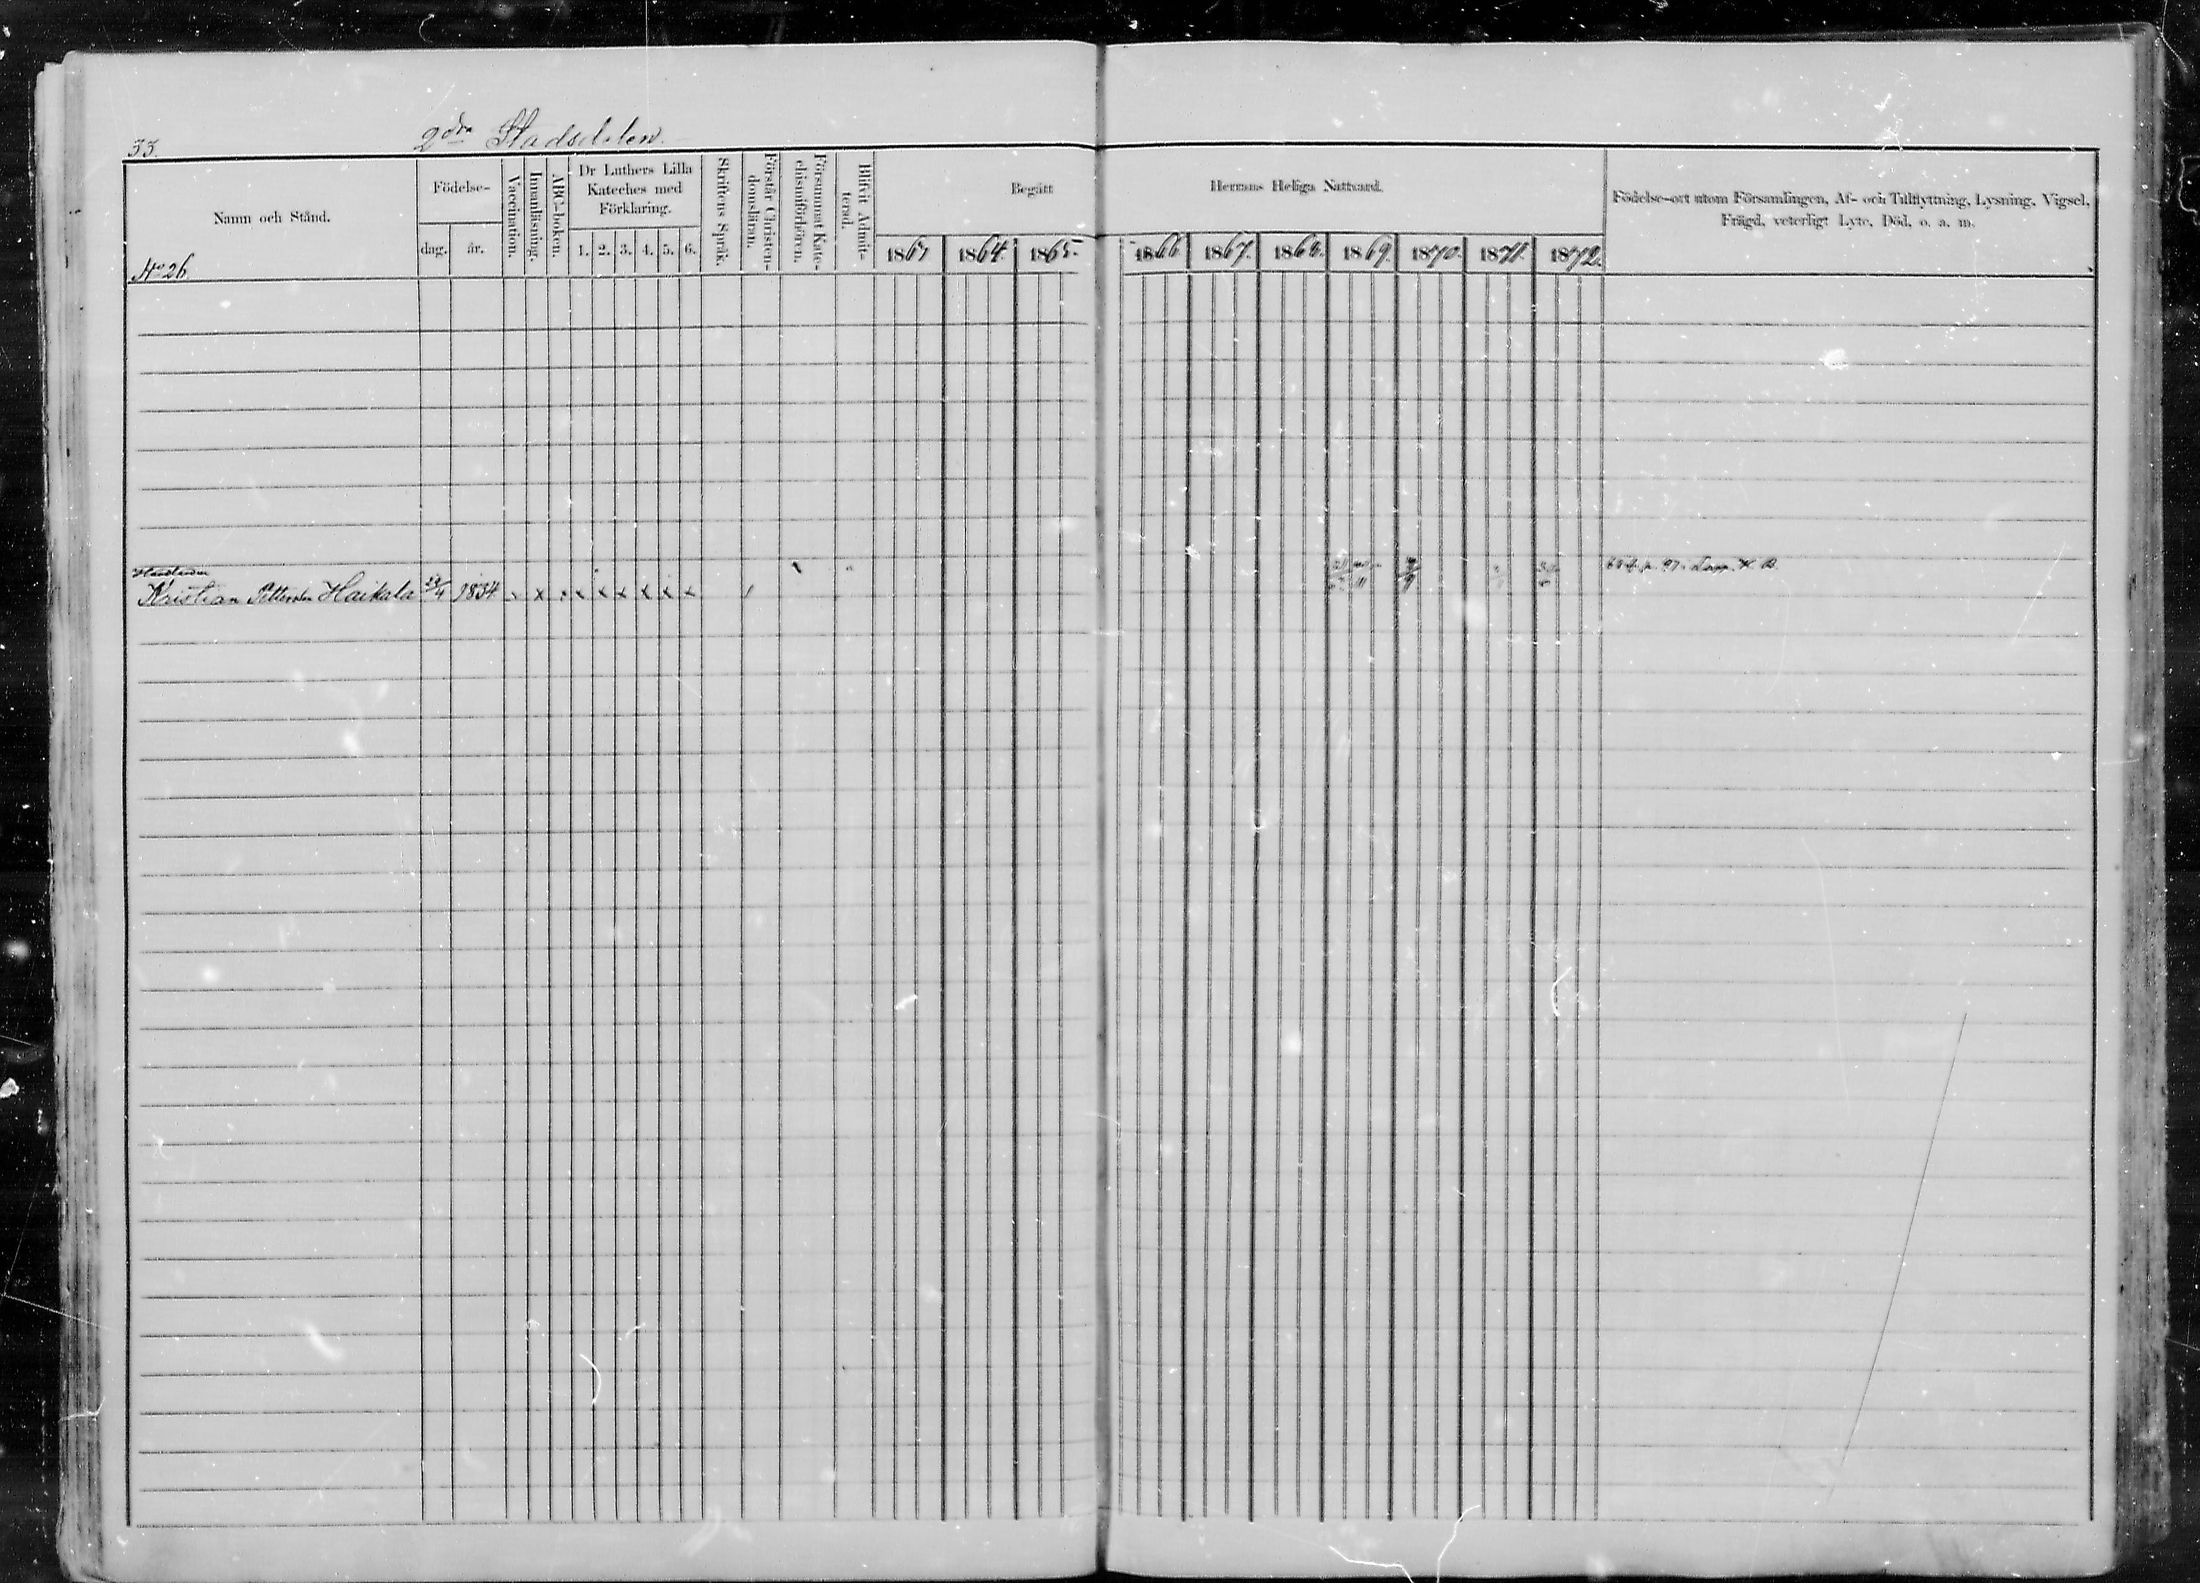 33.
2dra Stadsdelen
Namn och Stånd.
Födelse-
dag.
år.
Vaccination.
Innanläsning.
ABC-boken.
Dr Luthers Lilla
Kateches med
Förklaring.
1. 2. 3. 4. 5. 6.
Skriftens Språk.
Förstår Christen-
domsläran.
Försummat Kate-
chismiförhören.
Blifvit Admit-
terad.
Begått Herrans Heliga Nattvard.
1863 1864. 1865. 1866 1867. 1868. 1869. 1870. 1871. 1872.
Födelse-ort utom Församlingen, Af- och Tillflyttning, Lysning, Vigsel,
Frägd, veterligt Lyte, Död, o. a. m.
No 26
Kristian Petterson Haikala 1834 x x x x x x x